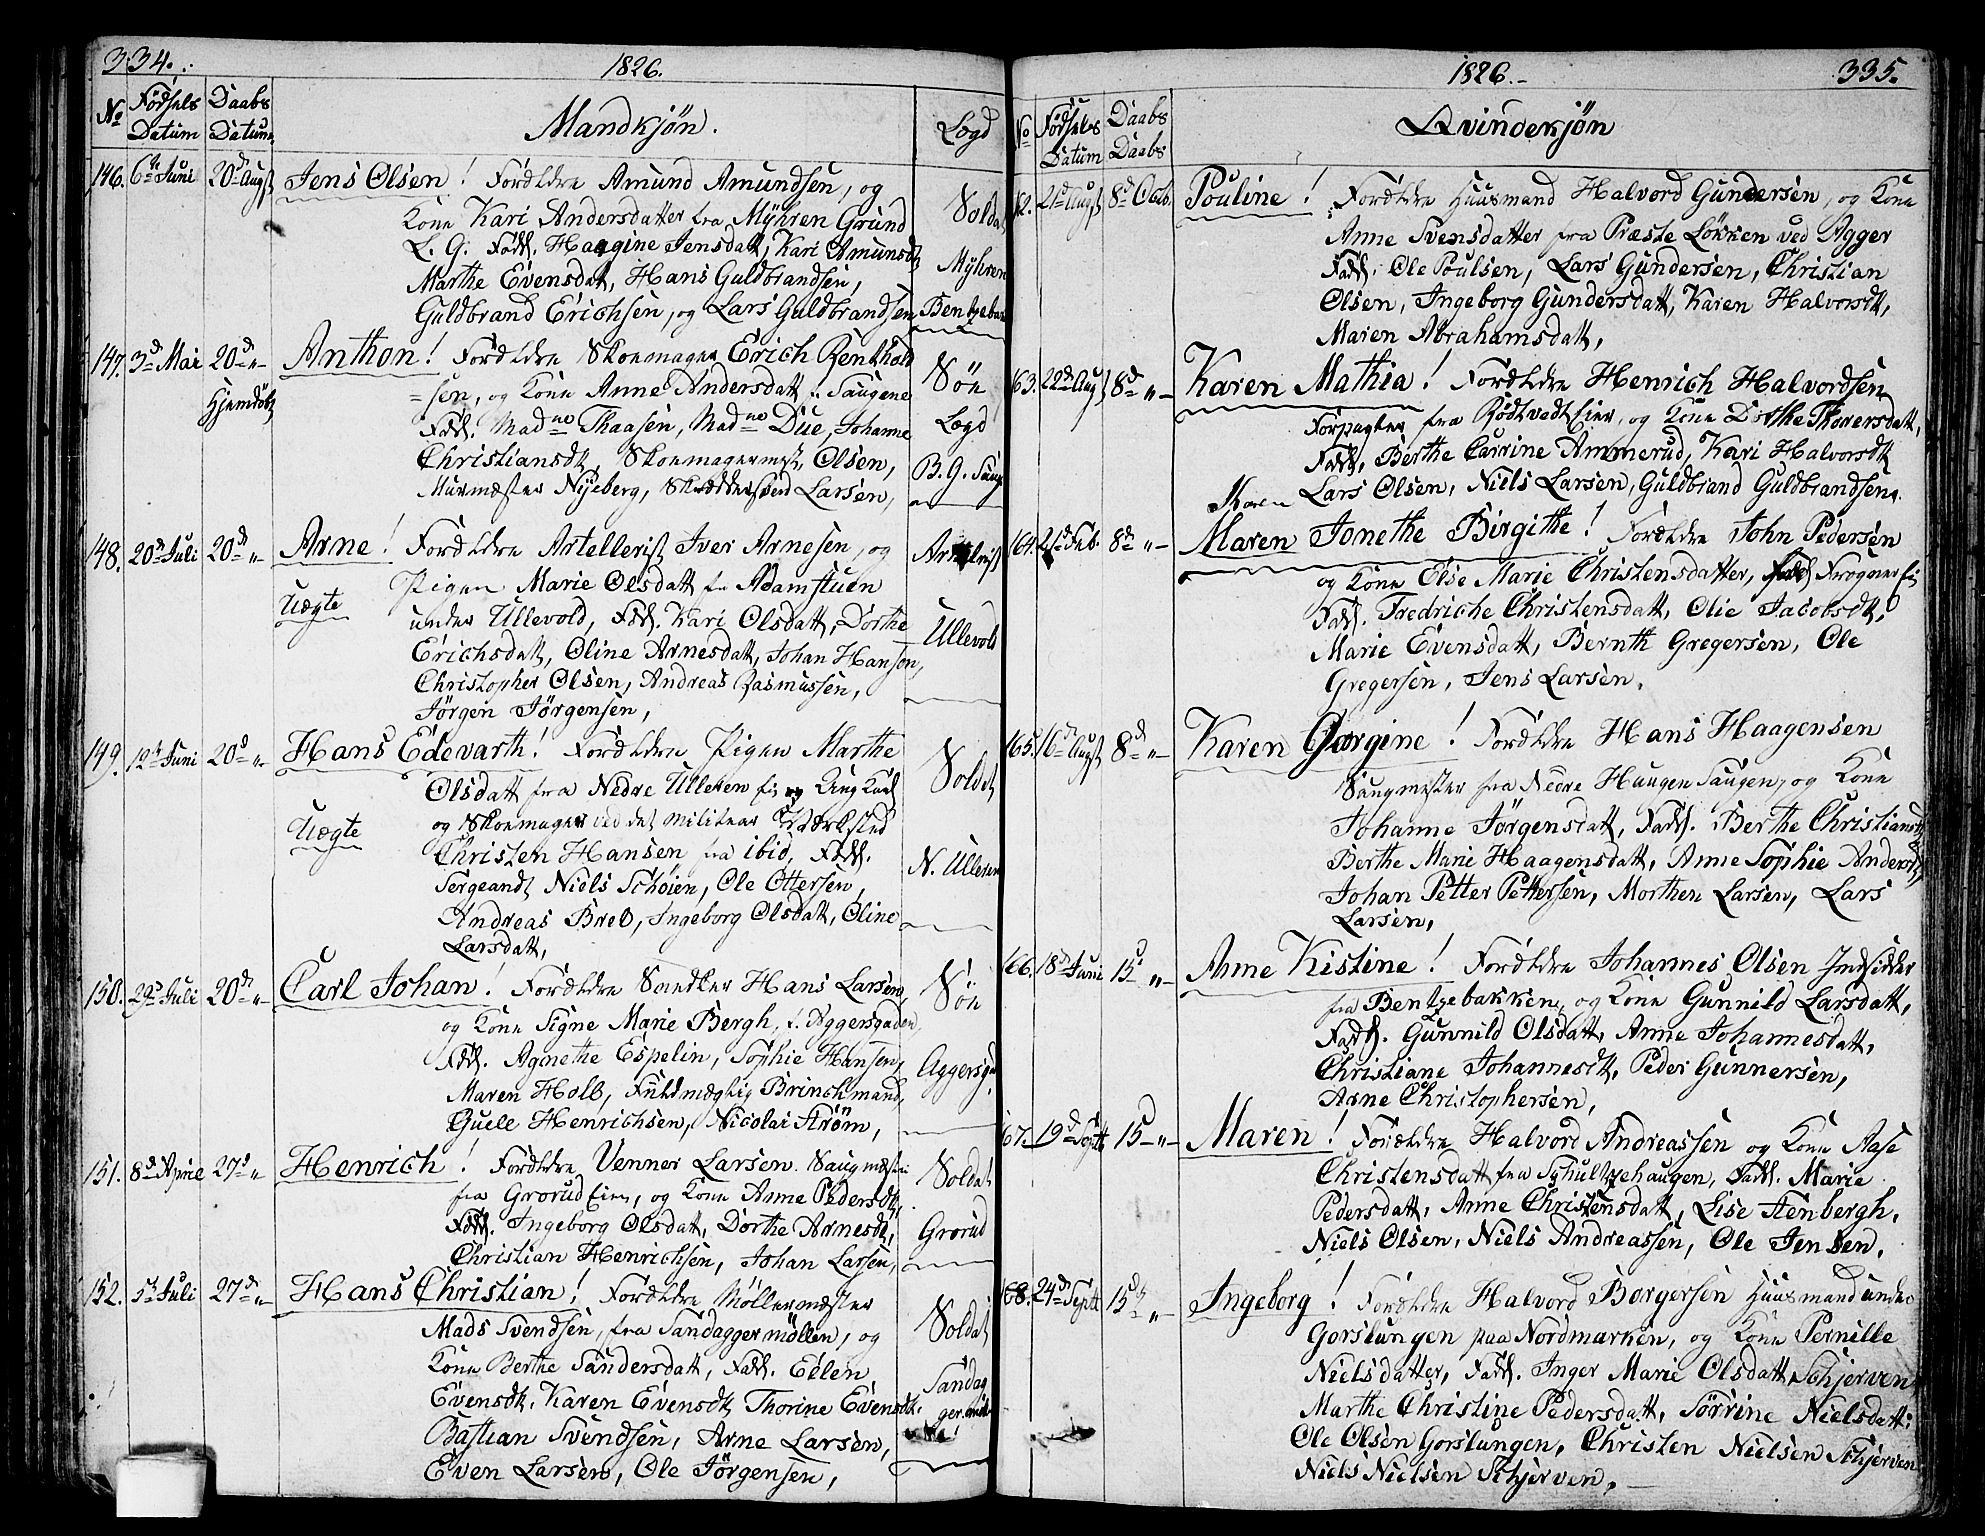 334.
1826.
No
Fødsels Datum
Daabs Datum
Mandkjøn.
Lægd
146. 6te Juni 20d Augst Jens Olsen! Forældre Amund Amundsen, og
Kone Kari Andersdatter fra Myhren Grund
L. G. Fadd. Haagine Jensdatt, Kari Amunsdt,
Marthe Evensdat, Hans Guldbrandsen,
Guldbrand Erichsen, og Lars Guldbrandsen
Soldat
Myhren
147. 3d Mai 20d "- Anthon! Forældre Skoemager Erich Benthold
Hjemdøbt
=sen, og Kone Anne Andersdatt Saugene
Fadd. Madme Thaasen, Madme Due, Johanne
Christiansdt, Skoemagermest, Olsen,
Murmæster Nyeberg, Skræddersvend Larsen,
Søe
Lægd
B. G. Saug
148. 20d Juli 20d "- Arne! Forældre Artellerist Iver Arnesen, og
Uægte
Pigen Marie Olsdatt fra Adamstuen
under Ullevold, Fadd. Kari Olsdatt, Dorthe
Erichsdatt, Oline Arnesdatt, Johan Hansen,
Christopher Olsen, Andreas Rasmussen,
Jørgen Jørgensen,
Ullevold
149. 12te Juni 20d "- Hans Edevarth! Forældre Pigen Marthe
Olsdatt fra Nedre Ulleren Ungkarl
Uægte
og Skoemager ved det militær Værksted
Christen Hansen fra ibid, Fadd.
Sergeandt Niels Schøien, Ole Ottersen,
Andreas Bred, Ingeborg Olsdatt, Oline
Larsdatt,
Soldat
N. Ulleren
150. 29d Juli 20d "- Carl Johan! Forældre Snedker Hans Larsen,
og Kone Signe Marie Bergh, f. Aggersgaden,
Fadd. Agnethe Espelin, Sophie Hansen,
Maren Holb, Fuldmægtig Brinchmand,
Henrichsen, Nicolai Strøm,
Søe
Aggersga,
151. 8d Aprile 27d " Henrich! Forældre Venner Larsen Saugmæster
fra Grorud Eier, og Kone Anne Pedersdt,
Fadd. Ingeborg Olsdatt, Dorthe Arnesdt,
Christian Henrichsen, Johan Larsen,
Soldat
Grorud
152. 5te Juli 27d "- Hans Christian! Forældre Møllermæster
Mads Svendsen, fra Sandaggermøllen, og
Kone Berthe Sandersdatt, Fadd. Eilen
Evensdt, Karen Evensdt, Thorine Evensdt.
Bastian Svendsen, Arne Larsen,
Even Larsen, Ole Jørgensen,
Soldat
Sandag
germøl
1826.-
335.
No
Fødsels Datum
Daabs Daabs
Qvindekjøn
62. 21d Augst 8d Octb. Pouline! Forældre Huusmand Halvord Gundersen, og Kone
Anne Svensdatter fra Præste Løkken ved Agger
Fadd. Ole Poulsen, Lars Gundersen, Christian
Olsen, Ingeborg Gundersdatt, Karen Halvorsdt,
Maren Abrahamsdatt,
63. 22d Augst 8d "- Karen Mathia! Forældre Henrich Halvordsen
Forpagter fra Rødtvedt Eier, og Kone Dorthe Thorersdatt,
Fadd. Berthe Carrine Ammerud, Kari Halvorsdt
Lars Olsen, Niels Larsen, Guldbrand Guldbrandsen.
Karen
164. 21d Feb. 8d "- Maren Jonethe Birgithe! Forældre John Pedersen
og Kone Else Marie Christensdatter, Frogner Ei
Fadd. Fredriche Christensdatt, Olie Jacobsdt,
Marie Evensdatt, Bernth Gregersen, Ole
Gregersen, Jens Larsen.
165. 16d Augst 8d "- Karen Gorgine! Forældre Hans Haagensen
Saugmester fra Nedre Haugen Saugen, og Kone
Johanne Jørgensdatt, Fadd. Berthe Christiansdt
Berthe Marie Haagensdatt, Anne Sophie Andersdt,
Johan Petter Pettersen, Morthen Larsen, Lars
Larsen,
166. 18d Juni 15d "- Anne Kistine! Forældre Johannes Olsen Indsidder
fra Bentzebakken, og Kone Gunnild Larsdatt,
Fadd. Gunnild Olsdatt, Anne Johannesdatt,
Christiane Johannesdt, Peder Gunnersen,
Arne Christophersen,
67. 19d Septt 15-"- Maren! Forældre Halvord Andreassen og Kone Aase
Christensdatt fra Schultzehaugen, Fadd. Marie
Pedersdatt, Anne Christensdatt, Lise Stenbergh,
Niels Olsen, Niels Andreassen, Ole Jensen.
168. 24d Septt 15d "- Ingeborg! Forældre Halvord Borgersen Huusmand under
Gorslungen paa Nordmarken, og Kone Pernille
Nielsdatter, Fadd. Inger Marie Olsdatt, Schjerven
Marthe Christine Pedersdatt, Sørrine Nielsdatt:
Ole Olsen Gorslungen, Christen Nielsen Schjerven
Niels Nielsen Schjerven.